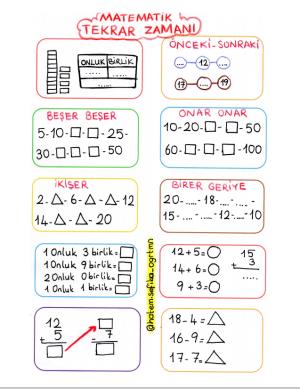 MATEMATİK
TEKRAR ZAMANI
ONLUK BİRLİK
..... ....
ÖNCEKİ-SONRAKİ
... 12 ...
17 ... 19
BEŞER BEŞER
5-10-□-□-25-
30-□-□-50
ONAR ONAR
10-20-□-□-50
60-□-□-□-100
İKİŞER
2-△-6-△-△-12
14-△-△-20
BİRER GERİYE
20-....-18-....-....
15-....-....-12-....-10
1 Onluk 3 birlik=□
1 Onluk 9 birlik=□
2 Onluk 0 birlik=□
1 Onluk 1 birlik=□
12+5=○
14+6=○
9+3=○
15
3
+
....
12
5
+
□
□
7
-
□
18-4=△
16-9=△
17-7=△
@hatem.sefika_ogrtmn